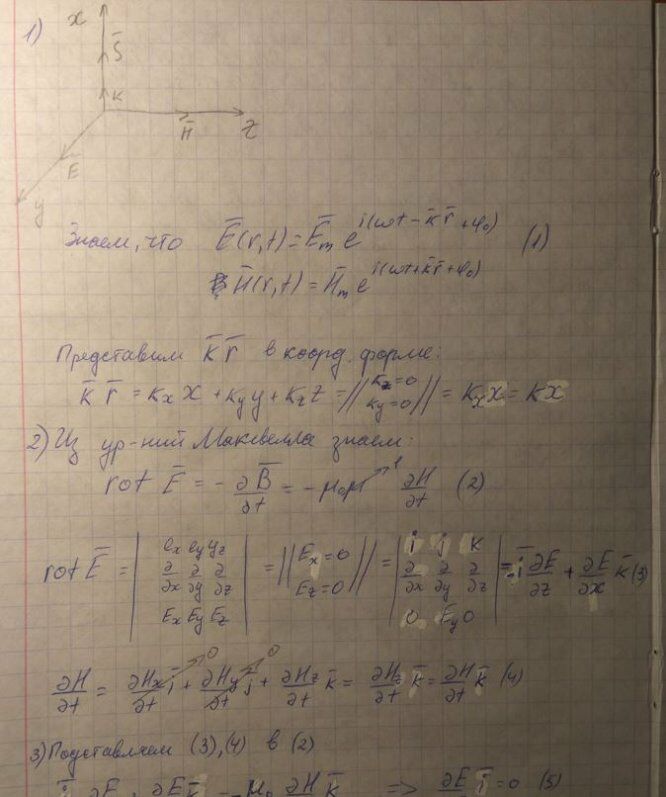 1)
x
S̄
K
H̄
z
Ē
y
Знаем, что Ē(r,t) = Ē_m e^{i(ωt - k̄ r̄ + φ₀)} (1)
H̄(r,t) = H̄_m e^{i(ωt + k̄ r̄ + φ₀)}
Представим k̄ r̄ в коорд. форме:
k̄ r̄ = k_x x + k_y y + k_z z = || k_z = 0 k_y = 0 || = k_x x = kx
2) Из ур-ний Максвелла знаем:
rot Ē = - ∂B̄/∂t = - μ₀μ ∂H/∂t (2)
rot Ē = | e_x e_y e_z ; ∂/∂x ∂/∂y ∂/∂z ; E_x E_y E_z | = || E_x = 0 E_z = 0 || = | i j k ; ∂/∂x ∂/∂y ∂/∂z ; 0 E_y 0 | = - ī ∂E/∂z + ∂E/∂x k̄ (3)
∂H/∂t = ∂H_x/∂t ī + ∂H_y/∂t j + ∂H_z/∂t k̄ = ∂H_z/∂t k̄ = ∂H/∂t k̄ (4)
3) Подставляем (3), (4) в (2)
ī ∂E ∂E k̄ μ₀ ∂H k̄ => ∂E ī = 0 (5)